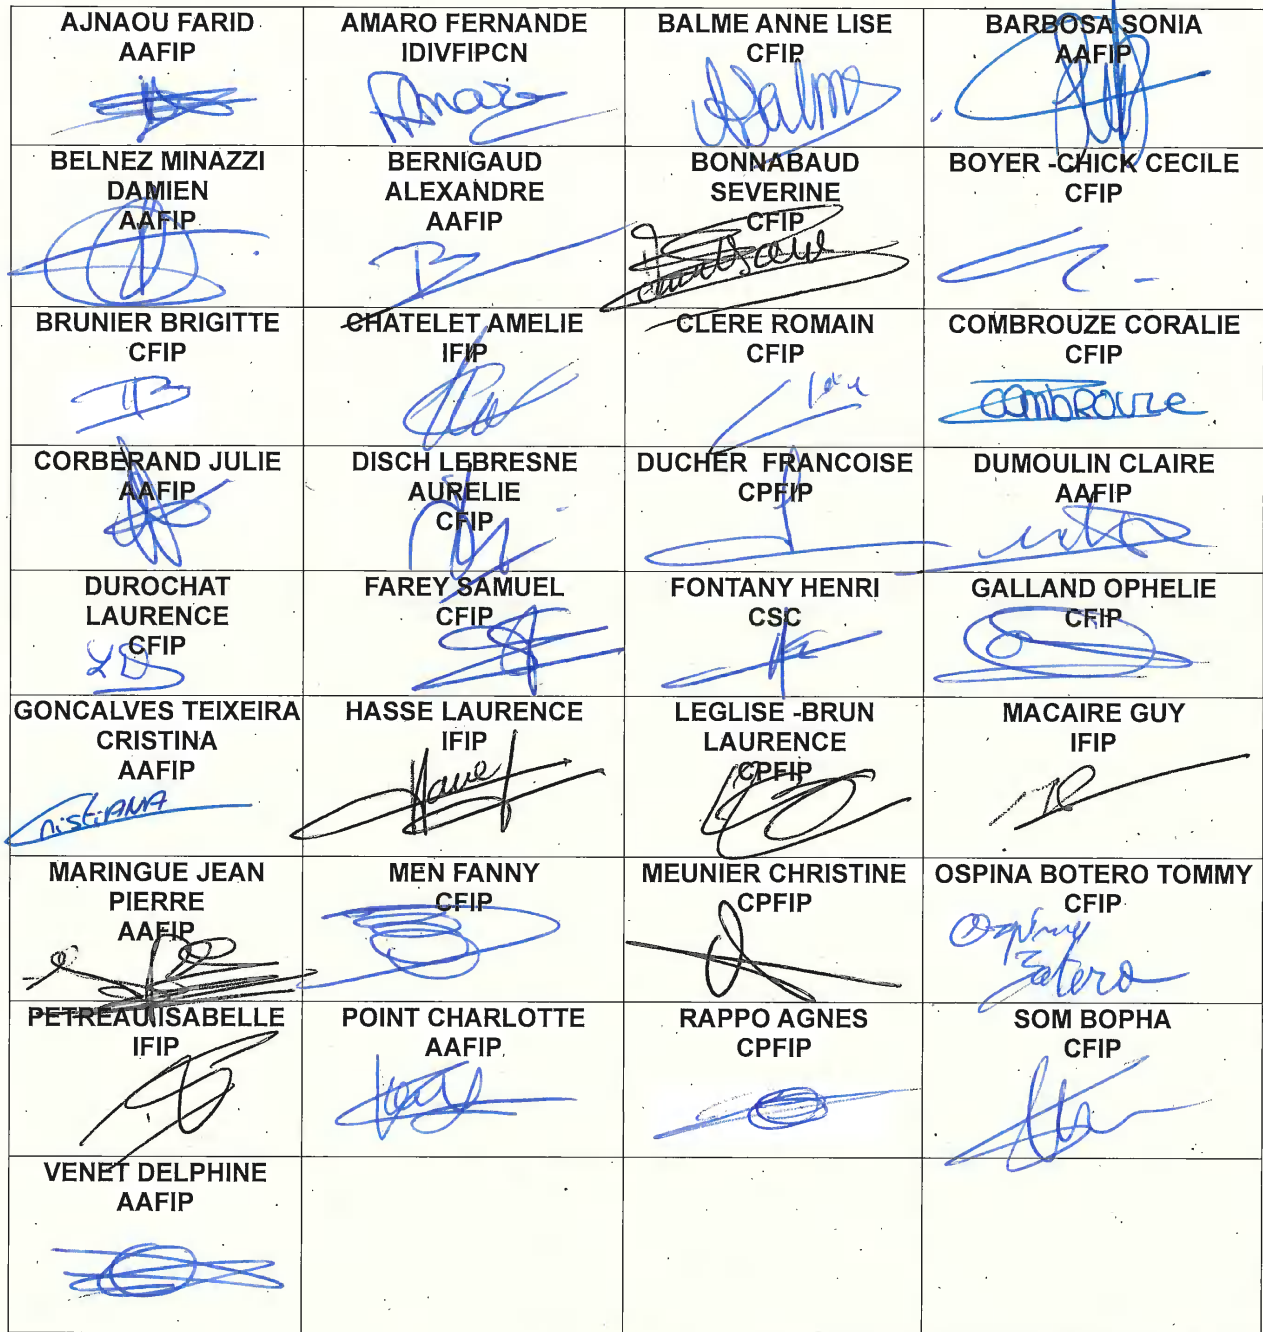 AJNAOU FARID
AAFIP
AMARO FERNANDE
IDIVFIPCN
BALME ANNE LISE
CFIP
BARBOSA SONIA
AAFIP
AAmaro
ABalme
BELNEZ MINAZZI
DAMIEN
AAFIP
BERNIGAUD
ALEXANDRE
AAFIP
BONNABAUD
SEVERINE
CFIP
BOYER -CHICK CECILE
CFIP
BRUNIER BRIGITTE
CFIP
CHATELET AMELIE
IFIP
CLERE ROMAIN
CFIP
COMBROUZE CORALIE
CFIP
COMBROUZE
CORBERAND JULIE
AAFIP
DISCH LEBRESNE
AURELIE
CFIP
DUCHER FRANCOISE
CPFIP
DUMOULIN CLAIRE
AAFIP
DUROCHAT
LAURENCE
CFIP
LD
FAREY SAMUEL
CFIP
FONTANY HENRI
CSC
GALLAND OPHELIE
CFIP
GONCALVES TEIXEIRA
CRISTINA
AAFIP
HASSE LAURENCE
IFIP
LEGLISE -BRUN
LAURENCE
CPFIP
MACAIRE GUY
IFIP
MARINGUE JEAN
PIERRE
AAFIP
MEN FANNY
CFIP
MEUNIER CHRISTINE
CPFIP
OSPINA BOTERO TOMMY
CFIP
PETREAU ISABELLE
IFIP
POINT CHARLOTTE
AAFIP
RAPPO AGNES
CPFIP
SOM BOPHA
CFIP
VENET DELPHINE
AAFIP